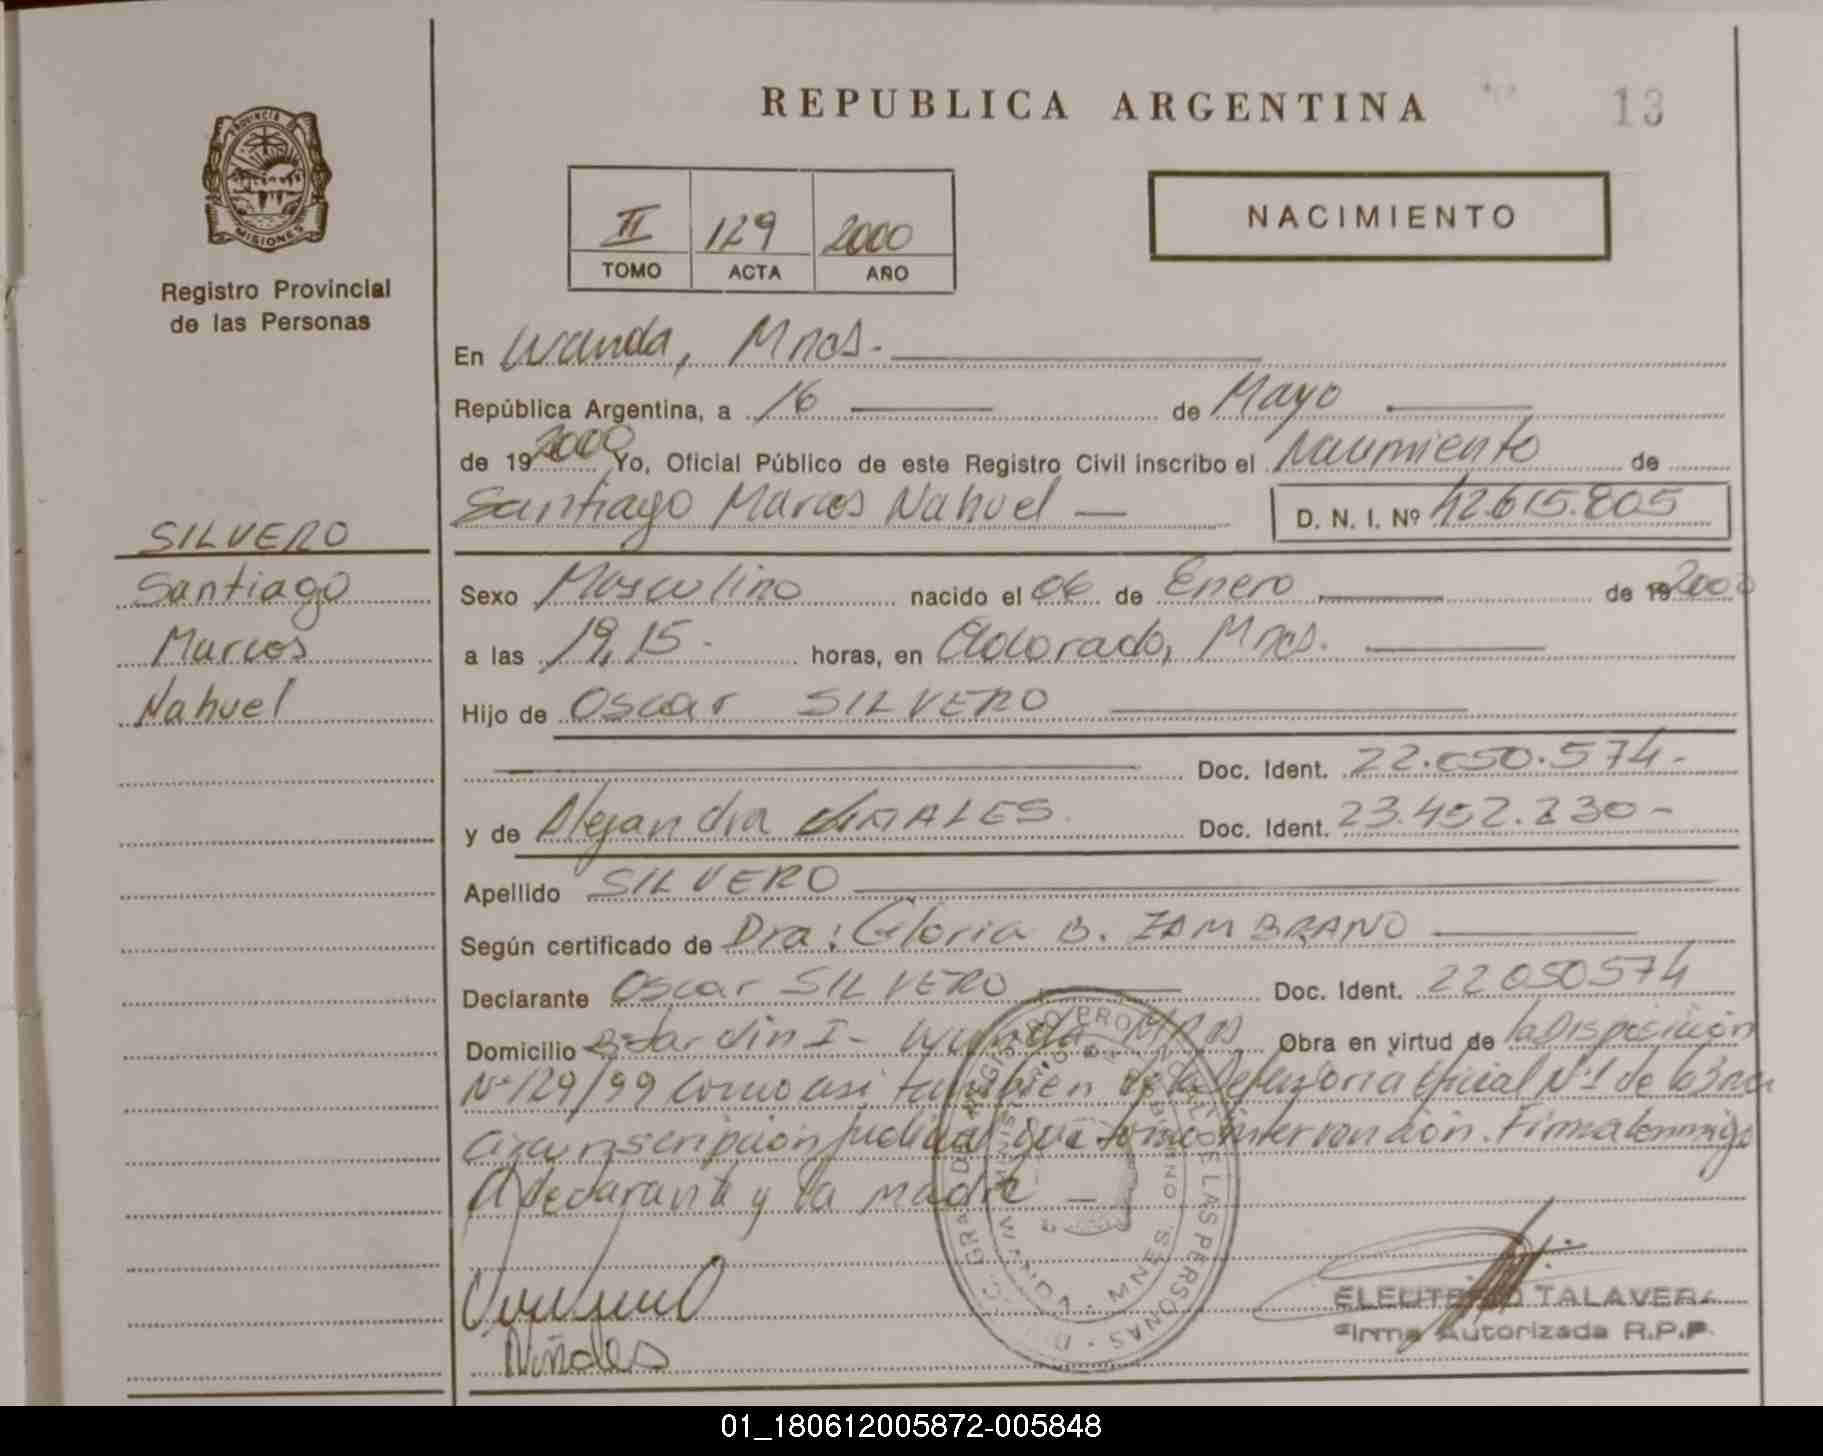 REPUBLICA ARGENTINA
13
PROVINCIA DE
MISIONES
Registro Provincial
de las Personas
II 129 2000
TOMO ACTA AÑO
NACIMIENTO
En Wanda, Mnes.
República Argentina, a 16 de Mayo
de 19 2000 Yo, Oficial Público de este Registro Civil inscribo el Nacimiento de
Santiago Marcos Nahuel — D. N. I. Nº 42.615.805
SILVERO
Santiago
Marcos
Nahuel
Sexo Masculino nacido el 06 de Enero de 19 2000
a las 19,15- horas, en Eldorado, Mnes.
Hijo de Oscar SILVERO
Doc. Ident. 22.050.574-
y de Alejandra Doc. Ident. 23.452.230-
Apellido SILVERO
Según certificado de Dra: Gloria B. ZAMBRANO
Declarante Oscar SILVERO Doc. Ident. 22050574
Domicilio Bº Jardin I- Wanda Mnes Obra en virtud de la Disposición
Nº 129/99 como asi también de la Defensoria Oficial Nº1 de la 3ra
Circunscripción Judicial que tomo intervención. Firma conmigo
el declarante y la madre —
ELEUTERIO TALAVERA
Firma Autorizada R.P.P.
01_180612005872-005848